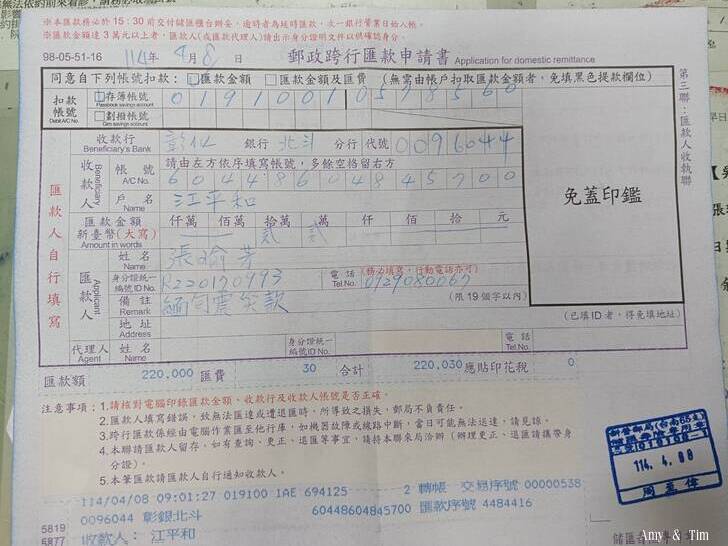 ※本匯款務必於15:30前交付儲匯櫃台辦妥，逾時者為延時匯款，次一銀行營業日始入帳。
※匯款金額達3萬元以上者，匯款人(或匯款代理人)請出示身分證明文件以供確認身分。
98-05-51-16 114年4月8日 郵政跨行匯款申請書 Application for domestic remittance
第三聯：匯款人收執聯
同意自下列帳號扣款：☑匯款金額 □匯款金額及匯費 (無需由帳戶扣取匯款金額者，免填黑色提款欄位)
扣款帳號 Debit A/C No. ☑存簿帳號 Passbook savings account 0191001 0578560
□劃撥帳號 Giro savings account
匯款人自行填寫
收款人 Beneficiary
收款行 Beneficiary's Bank 彰化 銀行 北斗 分行 代號 0096044
帳號 A/C No. 請由左方依序填寫帳號，多餘空格留右方
60448604845700
戶名 Name 江平和
免蓋印鑑
匯款金額 新臺幣(大寫) Amount in words 仟萬 佰萬 拾萬 萬 仟 佰 拾 元
貳 貳
匯款人 Applicant
姓名 Name 張瑜芳
身分證統一編號ID No. R220170993 電話 Tel.No. (務必填寫，行動電話亦可) 0929080067
備註 Remark 緬甸震災款 (限19個字以內)
地址 Address (已填ID者，得免填地址)
代理人 Agent 姓名 Name 身分證統一編號ID No. 電話 Tel.No.
匯款額 220,000 匯費 30 合計 220,030 應貼印花稅 0
注意事項：1.請核對電腦印錄匯款金額、收款行及收款人帳號是否正確。
2.匯款人填寫錯誤，致無法匯達或遭退匯時，所導致之損失，郵局不負責任。
3.跨行匯款係經由電腦作業匯至他行庫，如機器故障或線路中斷，當日可能無法送達，請見諒。
4.本聯請匯款人留存。如有查詢、更正、退匯等事宜，請持本聯來局洽辦（辦理更正、退匯請攜帶身分證）。
5.本筆匯款請匯款人自行通知收款人。
114.4.08
114/04/08 09:01:27 019100 1AE 694125 2 轉帳 交易序號 00000538
0096044 彰銀北斗 60448604845700 匯款序號 4484416
5819
5877 收款人：江平和
Amy & Tim